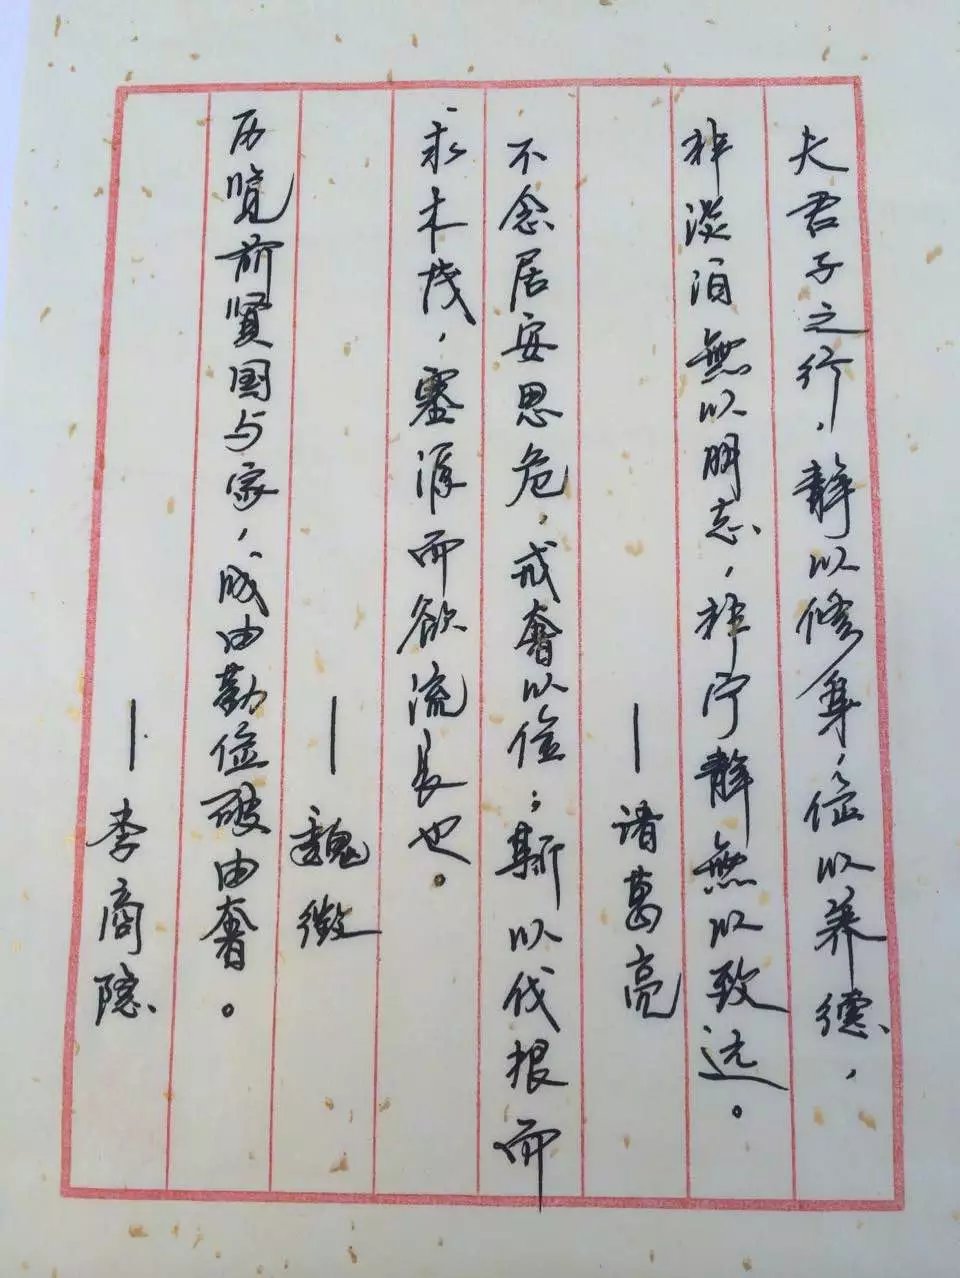 夫君子之行，静以修身，俭以养德，
非淡泊無以明志，非宁静無以致远。
——诸葛亮
不念居安思危，戒奢以俭；斯以伐根而
求木茂，塞源而欲流长也。
——魏徵
历览前贤国与家，成由勤俭破由奢。
——李商隐